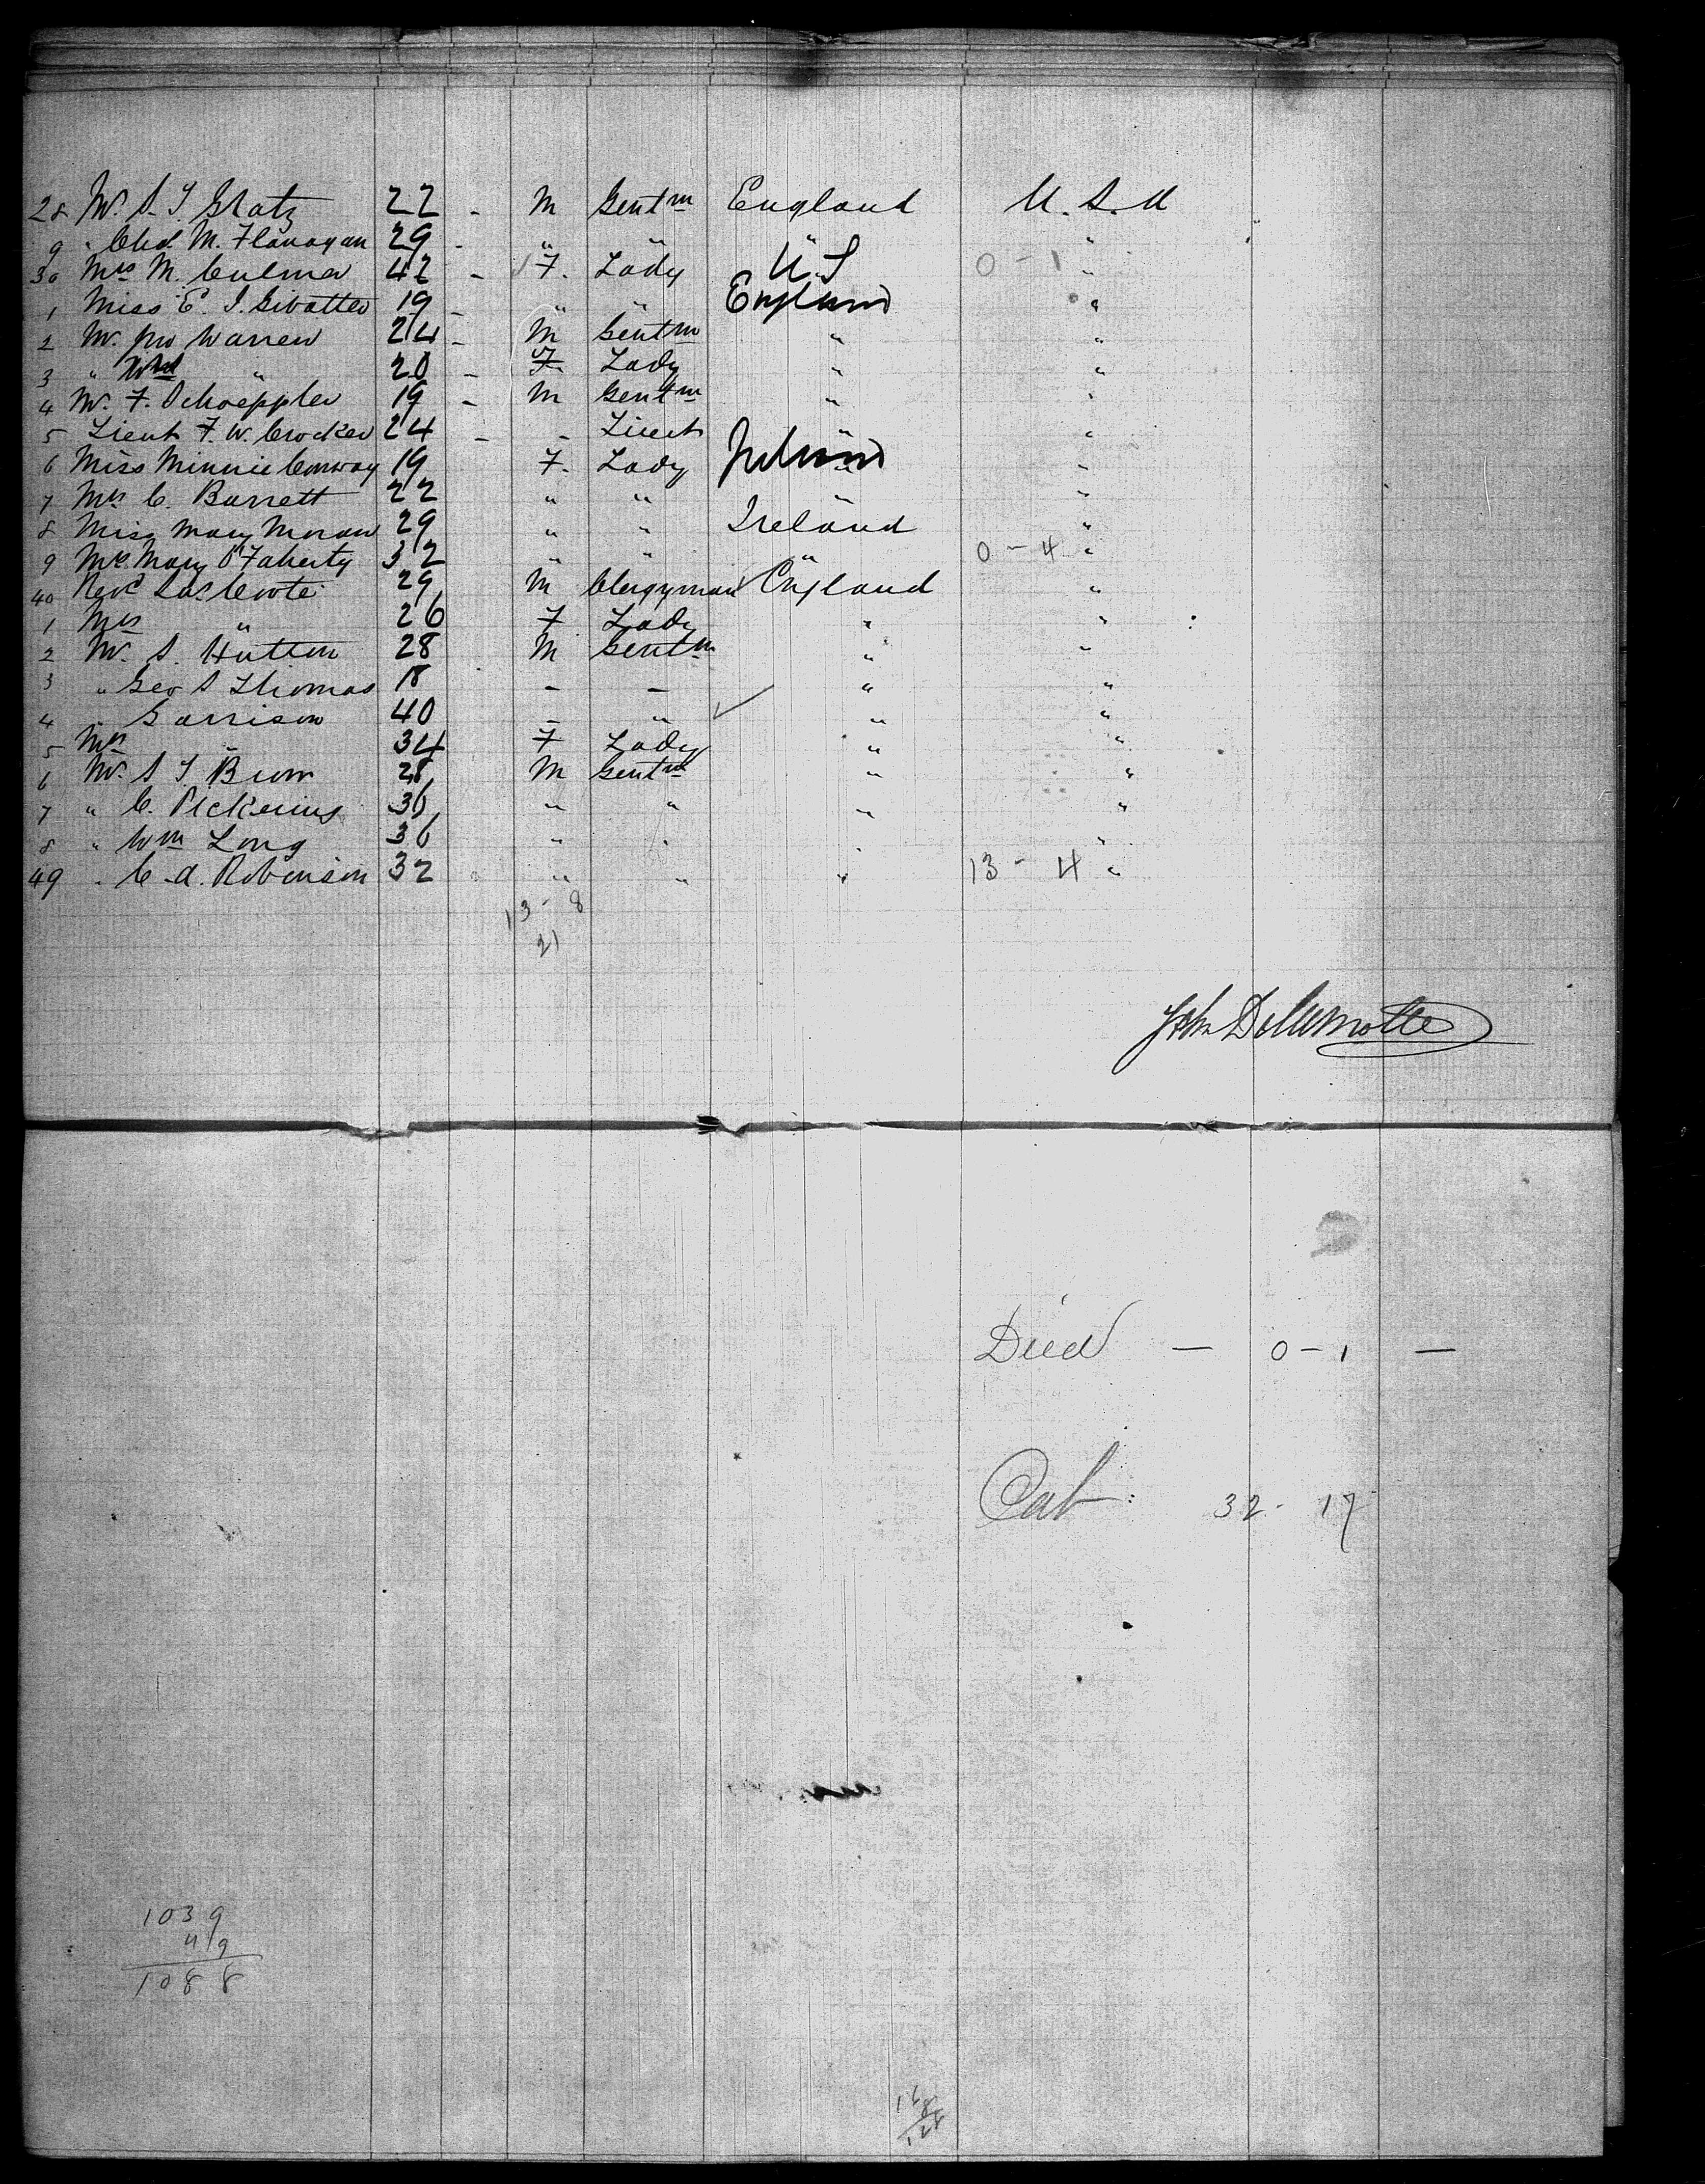 28 Mr. S. T Gratz 22 - M Gentm England U.S.A
9 " Chs. M. Flanagan 29 - " " "
30 Mrs M. Culmer 42 - F. Lady U.S 0 - 1 "
1 Miss E. J. 19 - " " England "
2 Mr. Jno Warren 24 - M Gentm " "
3 " " 20 - F Lady " "
4 Mr. F. Schoeppler 19 - M Gentm " "
5 Lieut F. W. Crocker 24 - - Lieut "
6 Miss Minnie Conway 19 F. Lady "
7 Mrs C. Barrett 22 " " "
8 Miss Mary Moran 29 " " Ireland "
9 Mrs. Mary O'Faherty 32 " " " 0 - 4 "
40 Revd 29 M Clergyman England "
1 Mrs " 26 F Lady " "
2 Mr. S. Hutton 28 M Gentm " "
3 " Geo S Thomas 18 - - " "
4 " Garrison 40 - " " "
5 Mrs " 34 F Lady " "
6 Mr. S T. 28 M Gentm " "
7 " C. Pickering 36 " " " "
8 " Wm Long 36 " " " "
49 " C. A. Robinson 32 " " " 13 - 4 "
13 - 8
21
John Delamotte
Died - 0 - 1 -
Cab: 32 - 17
1039
49
1088